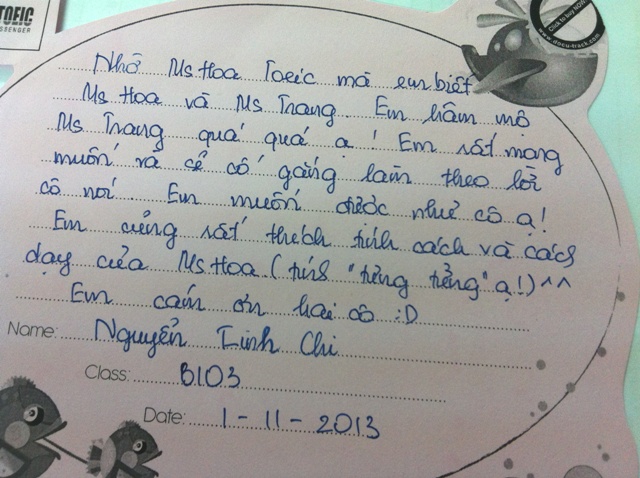 TOEIC
SSENGER
Click to buy NOW!
www.docu-track.com
Nhờ Ms Hoa Toeic mà em biết
Ms Hoa và Ms Trang. Em hâm mộ
Ms Trang quá quá ạ! Em rất mong
muốn và sẽ cố gắng làm theo lời
cô nói. Em muốn được như cô ạ!
Em cũng rất thích tính cách và cách
dạy của Ms Hoa (tính "tửng tửng" ạ!) ^^
Em cảm ơn hai cô :D
Name: Nguyễn Linh Chi
Class: B103
Date: 1 - 11 - 2013